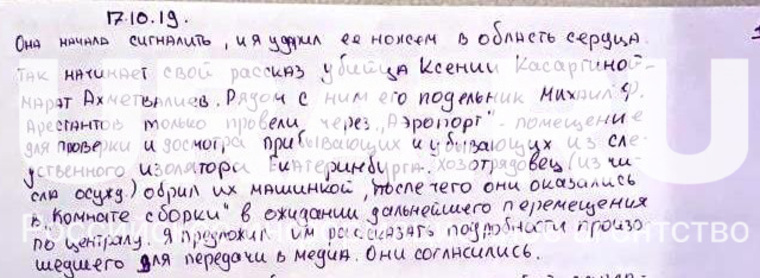 17.10.19.
Она начала сигналить, и я ударил ее ножом в область сердца.
Так начинает свой рассказ убийца Ксении Каторгиной -
Марат Ахметвалиев. Рядом с ним его подельник Михаил Ф.
Арестантов только провели через "Аэропорт" - помещение
для проверки и досмотра прибывающих и убывающих из сле-
дственного изолятора Екатеринбурга. Хозотрядовец (из чи-
сла осужд.) обрил их машинкой, после чего они оказались
в "Комнате сборки" в ожидании дальнейшего перемещения
по централу. Я предложил им рассказать подробности произо-
шедшего для передачи в медиа. Они согласились.